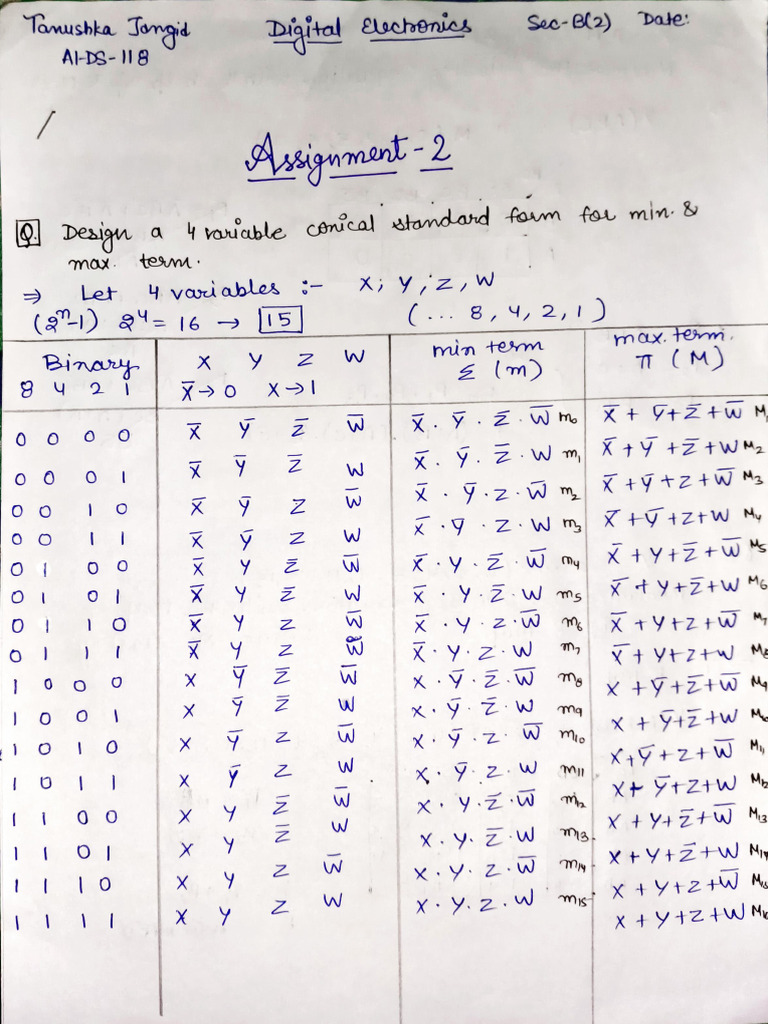 Tanushka Jangid Digital Electronics Sec-B(2) Date:
AI-DS-118
Assignment-2
Q. Design a 4 variable conical standard form for min. &
max. term.
⇒ Let 4 variables :- X, Y, Z, W
(2ⁿ-1) 2⁴ = 16 → 15 (... 8, 4, 2, 1)
Binary X Y Z W min term max. term.
8 4 2 1 X̅→0 X→1 Σ (m) π (M)
0 0 0 0 X̅ Y̅ Z̅ W̅ X̅ . Y̅ . Z̅ . W̅ m₀ X̅ + Y̅ + Z̅ + W̅ M₁
0 0 0 1 X̅ Y̅ Z̅ W X̅ . Y̅ . Z̅ . W m₁ X̅ + Y̅ + Z̅ + W M₂
0 0 1 0 X̅ Y̅ Z W̅ X̅ . Y̅ . Z . W̅ m₂ X̅ + Y̅ + Z + W̅ M₃
0 0 1 1 X̅ Y̅ Z W X̅ . Y̅ . Z . W m₃ X̅ + Y̅ + Z + W M₄
0 1 0 0 X̅ Y Z̅ W̅ X̅ . Y . Z̅ . W̅ m₄ X̅ + Y + Z̅ + W̅ M₅
0 1 0 1 X̅ Y Z̅ W X̅ . Y . Z̅ . W m₅ X̅ + Y + Z̅ + W M₆
0 1 1 0 X̅ Y Z W̅ X̅ . Y . Z . W̅ m₆ X̅ + Y + Z + W̅ M₇
0 1 1 1 X̅ Y Z W X̅ . Y . Z . W m₇ X̅ + Y + Z + W M₈
1 0 0 0 X Y̅ Z̅ W̅ X . Y̅ . Z̅ . W̅ m₈ X + Y̅ + Z̅ + W̅ M₉
1 0 0 1 X Y̅ Z̅ W X . Y̅ . Z̅ . W m₉ X + Y̅ + Z̅ + W M₁₀
1 0 1 0 X Y̅ Z W̅ X . Y̅ . Z . W̅ m₁₀ X + Y̅ + Z + W̅ M₁₁
1 0 1 1 X Y̅ Z W X . Y̅ . Z . W m₁₁ X + Y̅ + Z + W M₁₂
1 1 0 0 X Y Z̅ W̅ X . Y . Z̅ . W̅ m₁₂ X + Y + Z̅ + W̅ M₁₃
1 1 0 1 X Y Z̅ W X . Y . Z̅ . W m₁₃ X + Y + Z̅ + W M₁₄
1 1 1 0 X Y Z W̅ X . Y . Z . W̅ m₁₄ X + Y + Z + W̅ M₁₅
1 1 1 1 X Y Z W X . Y . Z . W m₁₅ X + Y + Z + W M₁₆